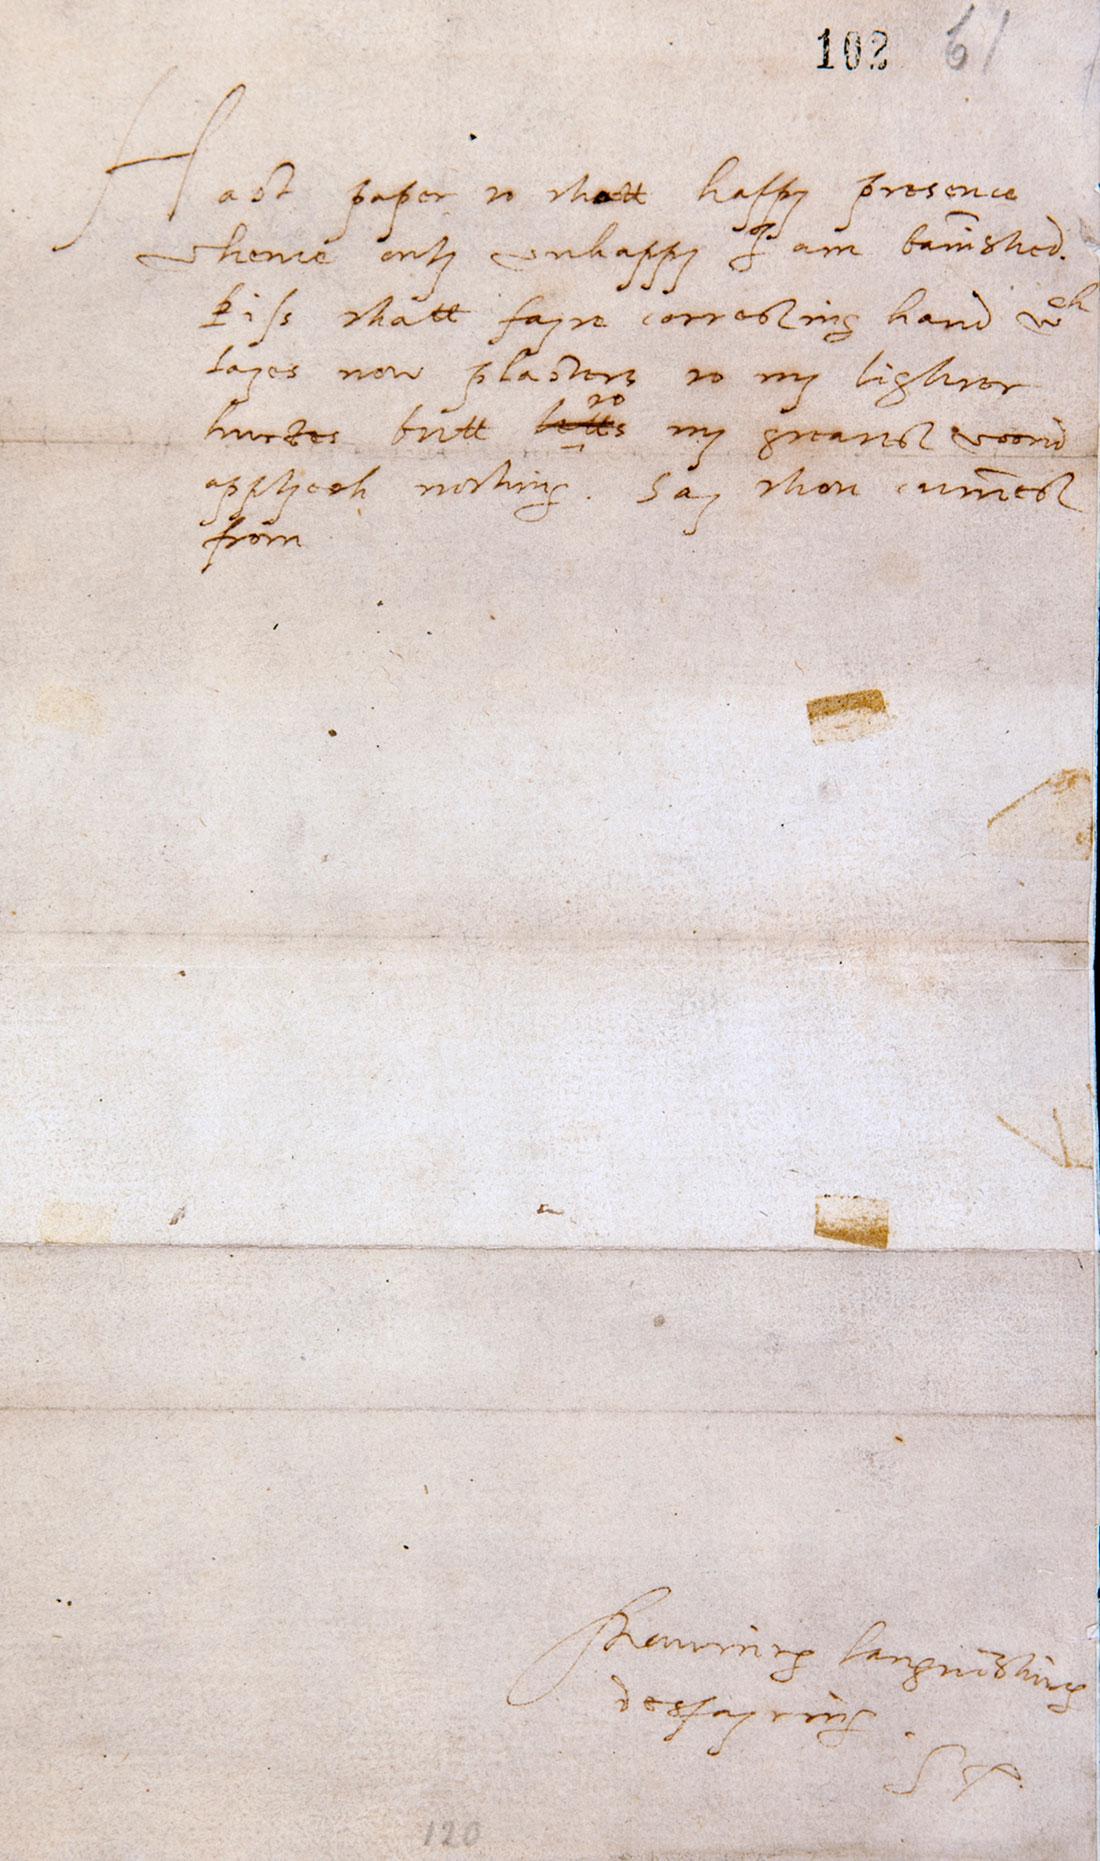 102 61
Hast paper to thatt happy presence
whence only vnhappy I am bannished.
Kiss thatt fayre correcting hand wch
layes now plasters to my lighter
to
hurtes butt my greatest woond
applyeth nothing. Say thou cummest
from
Shaming languishing
despayring.
SX
120